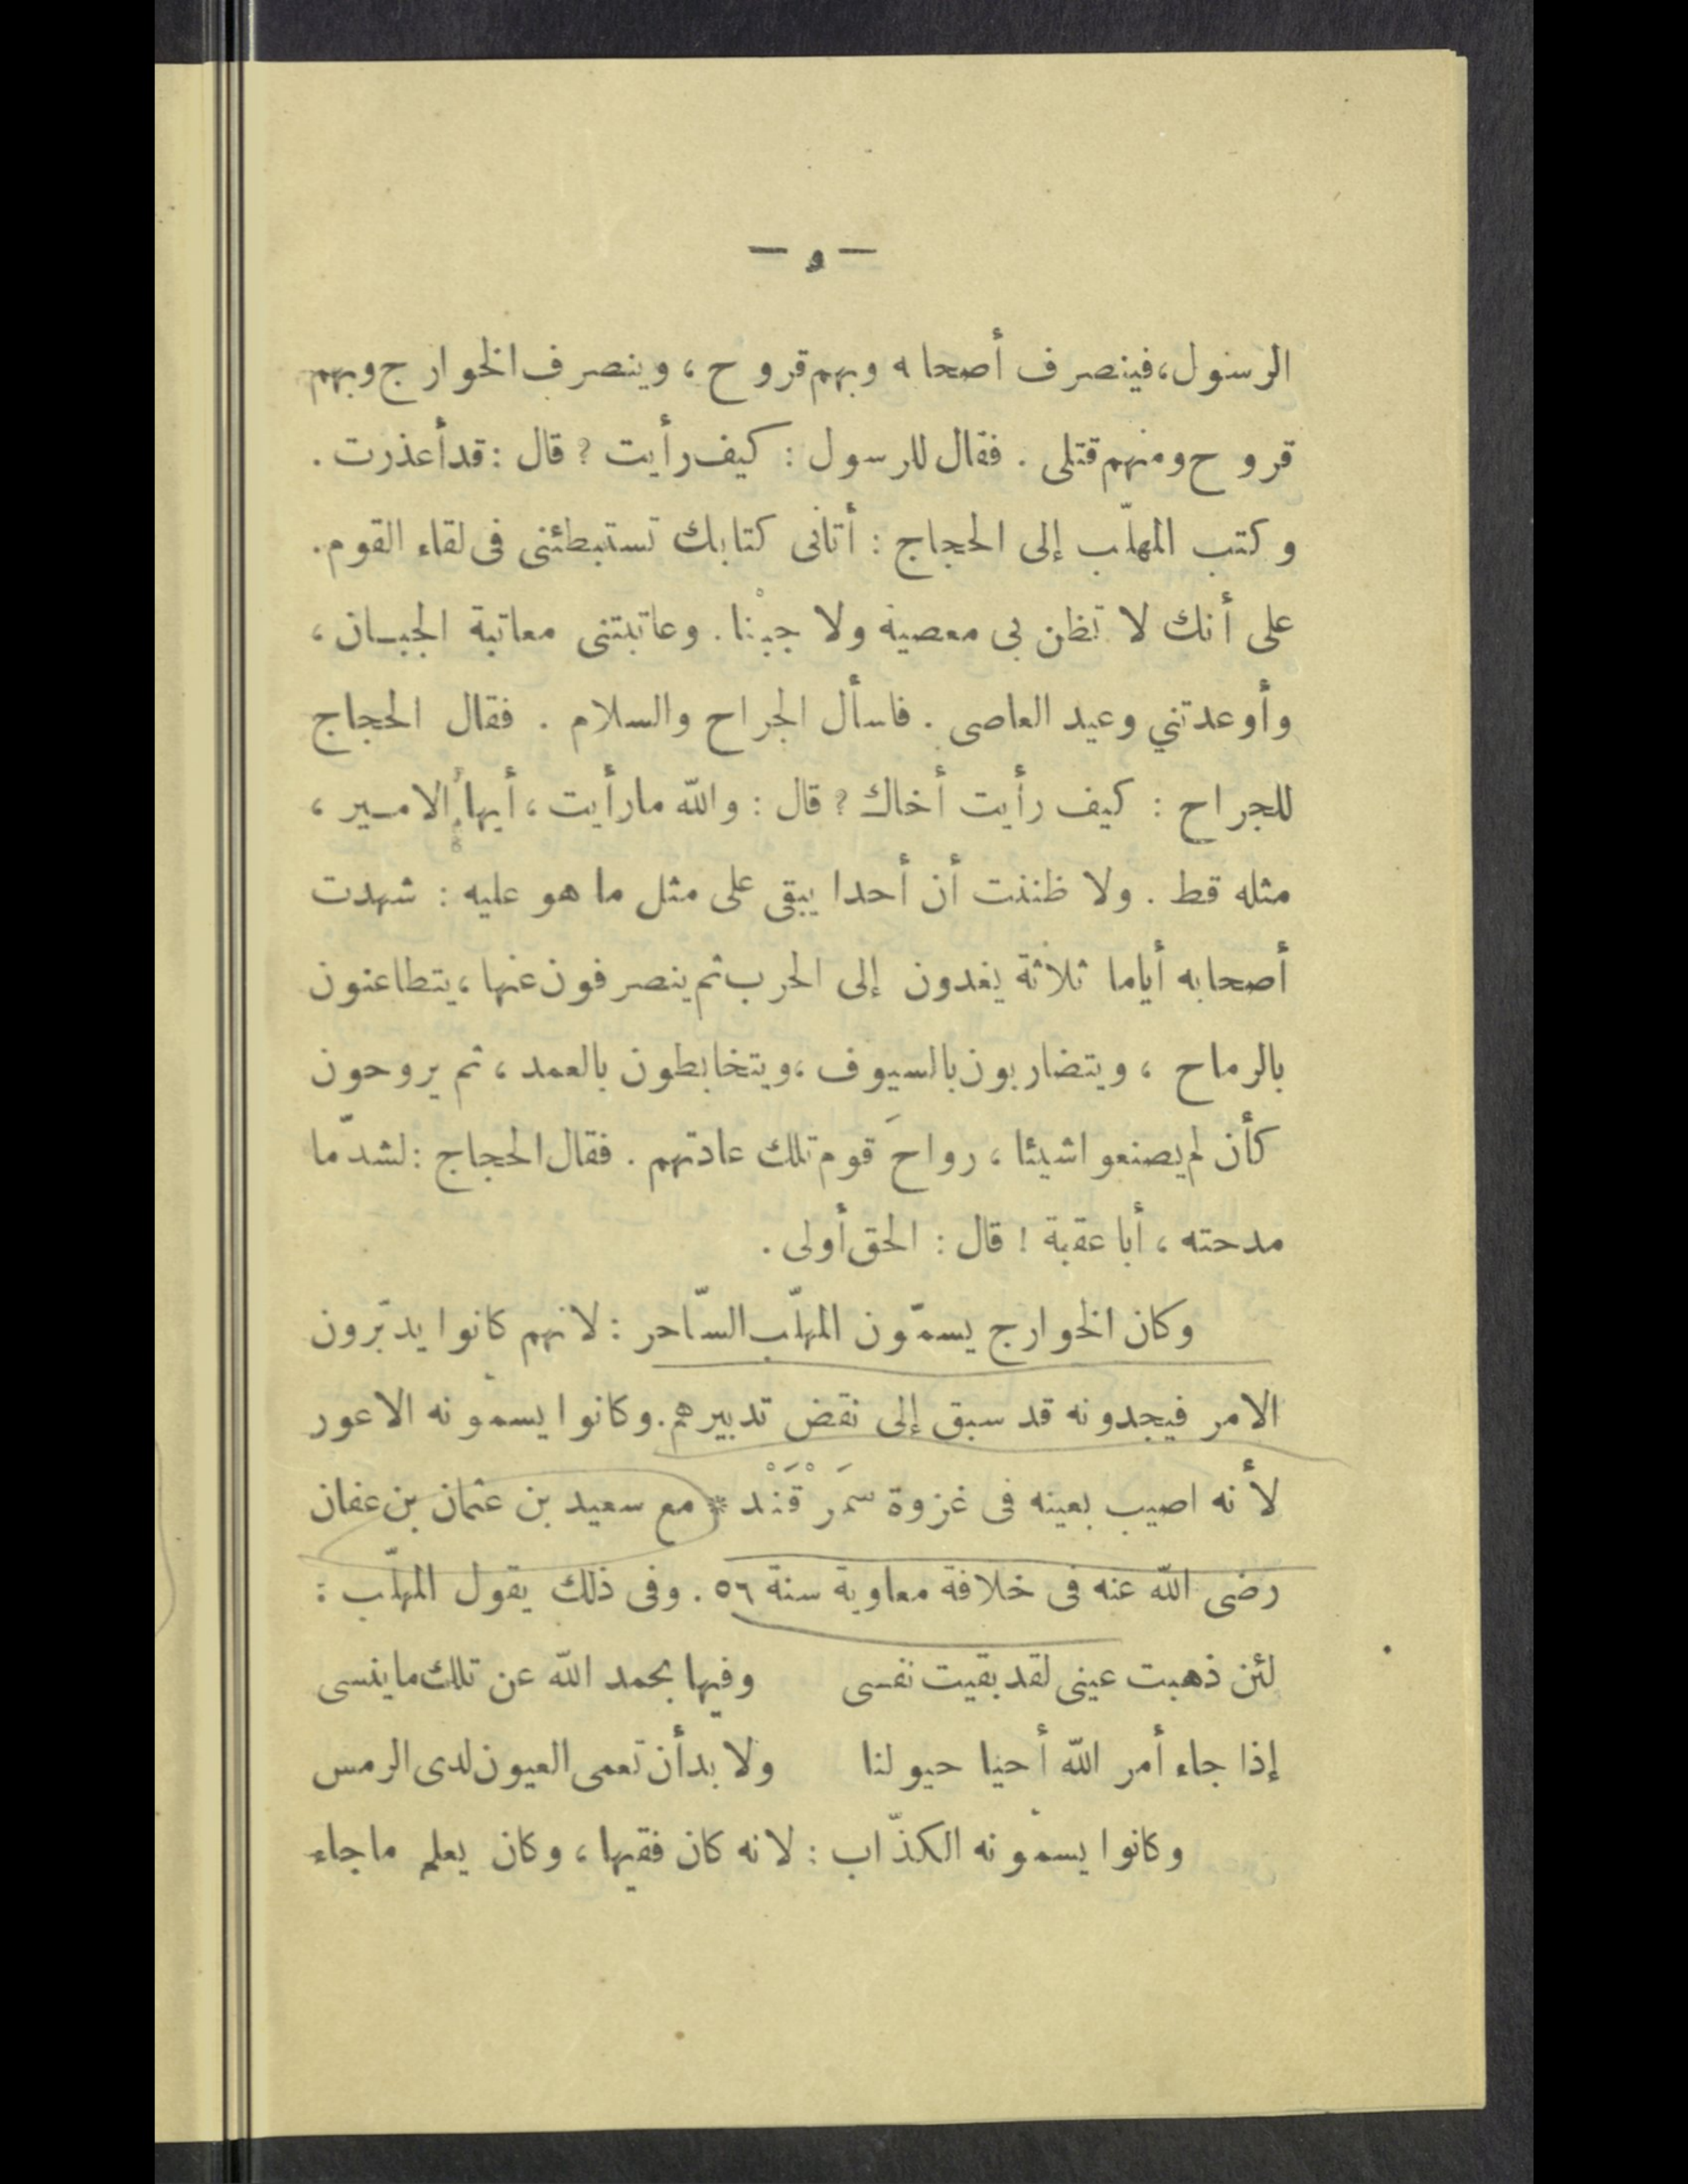 — و —
الرسول، فينصرف أصحابه وبهم قروح، وينصرف الخوارج وبهم
قروح ومنهم قتلى . فقال للرسول : كيف رأيت ? قال : قد أعذرت .
وكتب المهلّب إلى الحجاج : أتانى كتابك تستبطئنى فى لقاء القوم .
على أنك لا تظن بى معصية ولا جبْنا . وعاتبتنى معاتبة الجبان ،
وأوعدتني وعيد العاصى . فاسأل الجراح والسلام . فقال الحجاج
للجراح : كيف رأيت أخاك ? قال : والله ما رأيت ، أيها الامير ،
مثله قط . ولا ظننت أن أحدا يبقى على مثل ما هو عليه : شهدت
أصحابه أياما ثلاثة يغدون إلى الحرب ثم ينصرفون عنها ، يتطاعنون
بالرماح ، ويتضاربون بالسيوف ، ويتخابطون بالعمد ، ثم يروحون
كأن لم يصنعوا شيئا ، رواحَ قوم تلك عادتهم . فقال الحجاج : لشدّ ما
مدحته ، أبا عقبة ! قال : الحق أولى .
وكان الخوارج يسمّون المهلّب السّاحر : لانهم كانوا يدبّرون
الامر فيجدونه قد سبق إلى نقض تدبيرهم . وكانوا يسمونه الاعور
لأنه اصيب بعينه فى غزوة سَمَرْقَنْد * مع سعيد بن عثمان بن عفان
رضى الله عنه فى خلافة معاوية سنة ٥٦ . وفى ذلك يقول المهلّب :
لئن ذهبت عينى لقد بقيت نفسى وفيها بحمد الله عن تلك ما ينسى
إذا جاء أمر الله أحيا حيولنا ولا بد أن تعمى العيون لدى الرمس
وكانوا يسمونه الكذّاب : لانه كان فقيها ، وكان يعلم ما جاء